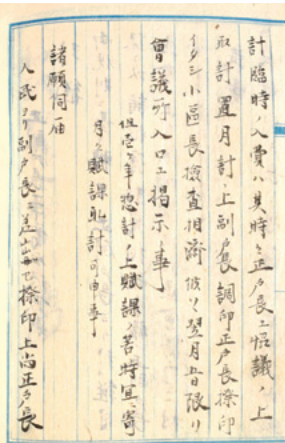 計臨時ノ入費ハ其時々正戸長エ協議ノ上
取計置月計ノ上副戸長調印正戸長検印
イタシ小區長檢査相濟候ハヽ翌月五日限リ
會議所入口エ掲示ノ事
但壱ケ年惣計ノ上賦課ノ苦時宜ニ寄
月々賦課取計可申事
諸願伺届
人民ヨリ副戸長ニ差出シ検印上尚正戸長